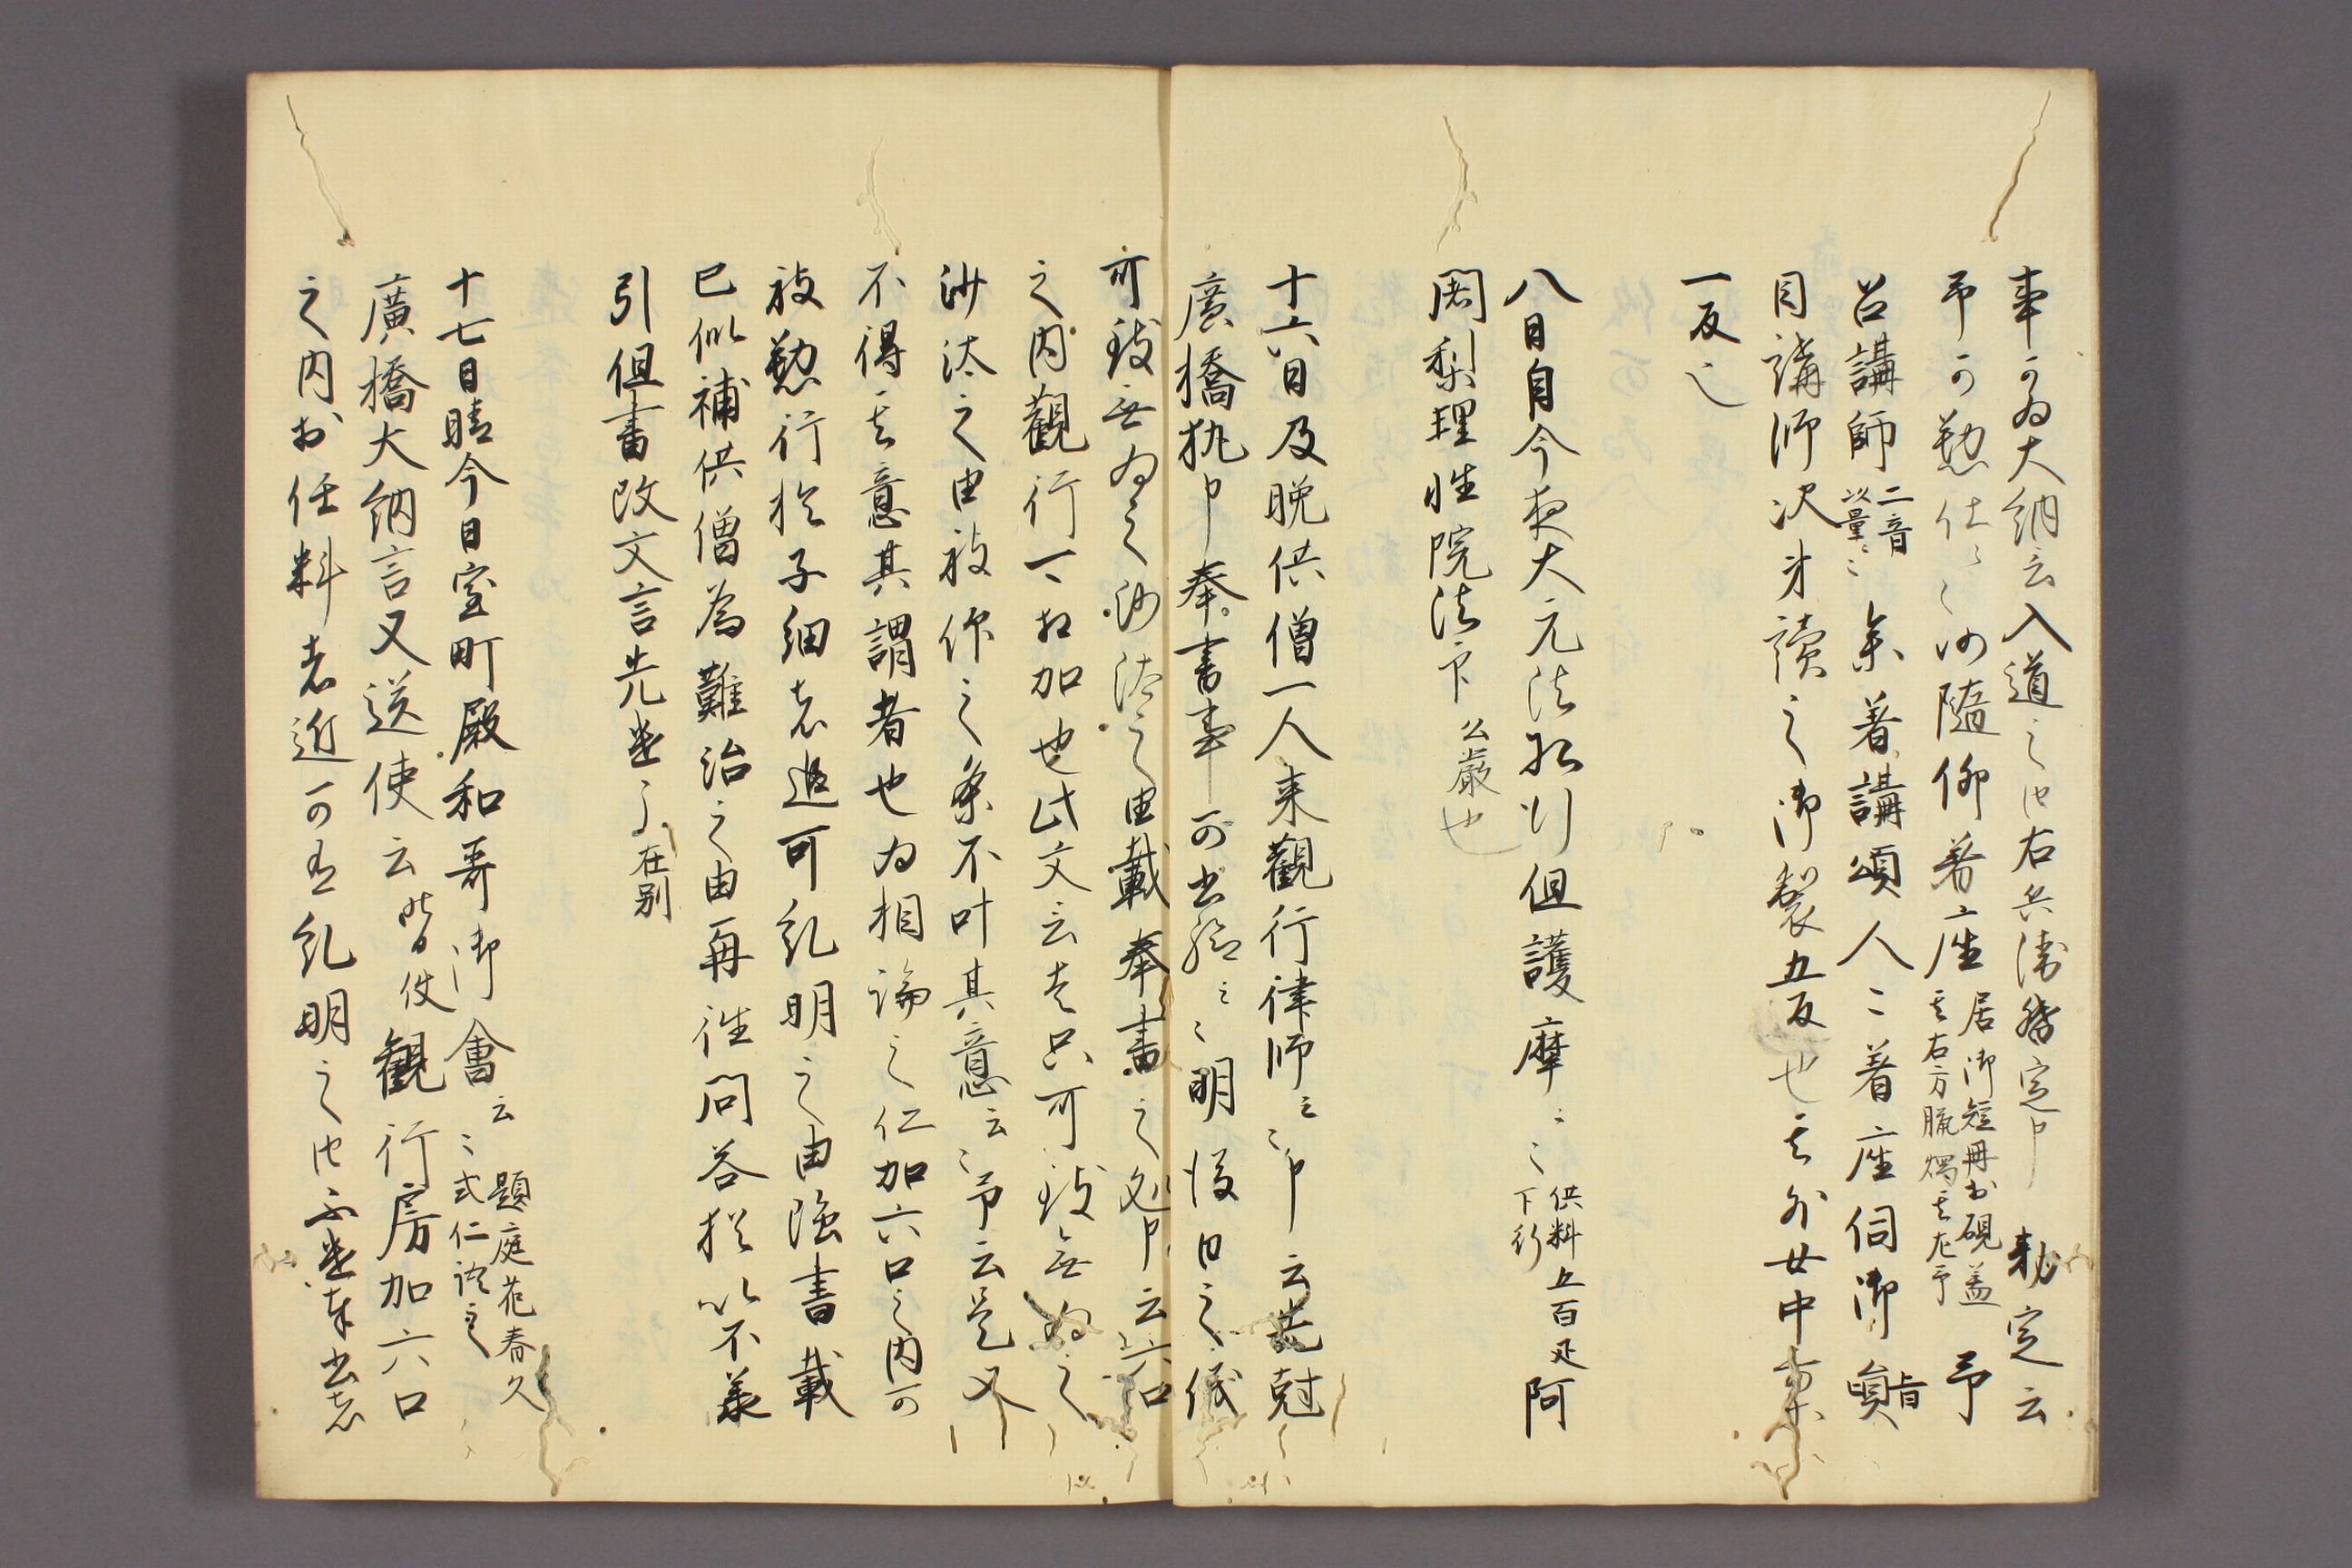 事可為大納言入道之由右兵衛督定申 勅定云
予可勤仕之由隨仰着座 居御短冊於硯蓋 其右方脂燭其左予 予
召講師 二音 以量云々 参着講頌人々着座伺御 旨
目講師次才讀之御製五反也其外女中
一反也
八日自今夜大元法始行但護摩云々 供料五百疋 下行 阿
闍梨理性院法印 公嚴也
十六日及晩供僧一人来觀行律師云々申云
廣橋執申奉書事可出給云々明後日之儀
可致無為之沙汰之由載奉書之処申云六口
之内觀行一口加也此文言者只可致無為之
沙汰之由被作之条不叶其意云々予云是又
不得其意其謂者也為相論之仁加六口之内可
被勤行於子細者追可糺明之由强書載
已似補供僧為難治之由再往問答猶以不兼
引但書改文言先遣了 在別
十七日晴今日室町殿和哥御會云々 題庭花春久 式仁詠之
廣橋大納言又送使云昨日使觀行房加六口
之内於任料者近可有糺明之由